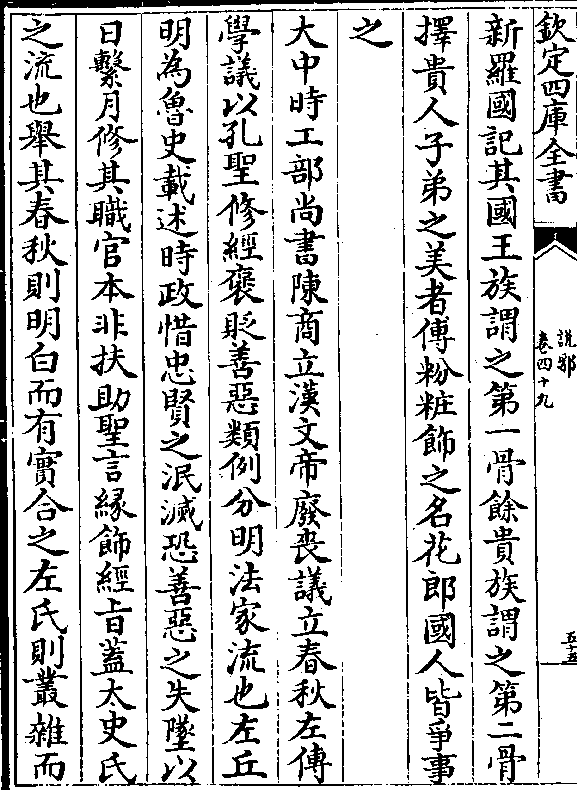 欽定四庫全書
說郛
卷四十九
五十五
新羅國記其國王族謂之第一骨餘貴族謂之第二骨
擇貴人子弟之美者傅粉粧飾之名花郎國人皆爭事
之
大中時工部尚書陳商立漢文帝廢喪議立春秋左傳
學議以孔聖修經褒貶善惡類例分明法家流也左丘
明為魯史載述時政惜忠賢之泯滅恐善惡之失墜以
日繫月修其職官本非扶助聖言緣飾經旨蓋太史氏
之流也舉其春秋則明白而有實合之左氏則叢雜而